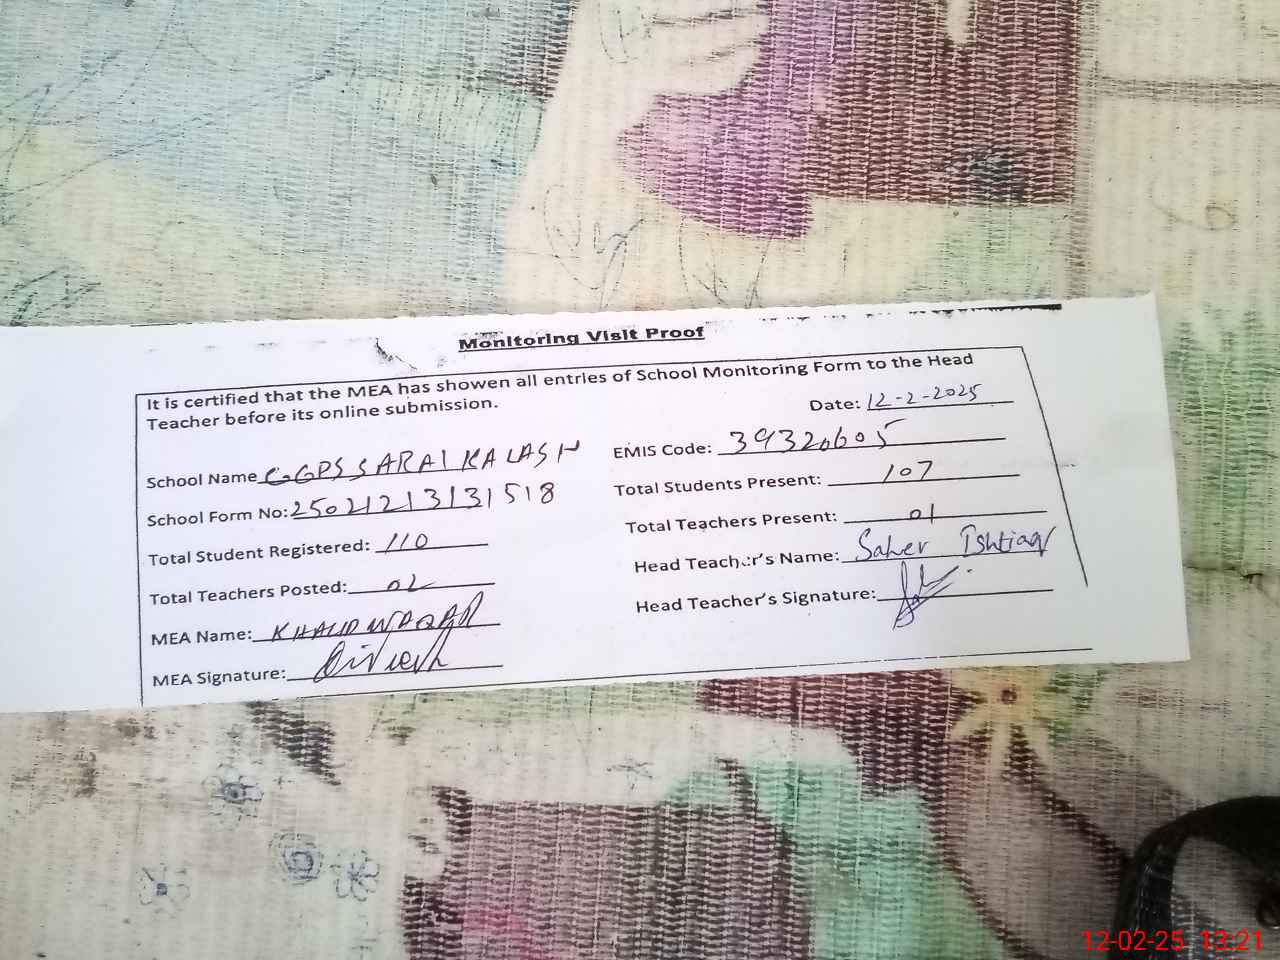 Monitoring Visit Proof
It is certified that the MEA has showen all entries of School Monitoring Form to the Head
Teacher before its online submission.
Date: 12-2-2025
School Name GGPS SARAI KALASH
EMIS Code: 39320605
School Form No: 25021213131518
Total Students Present: 107
Total Student Registered: 110
Total Teachers Present: 01
Total Teachers Posted: 02
Head Teacher's Name: Saher Ishtiaq
MEA Name: KHALID WAQAR
Head Teacher's Signature:
MEA Signature:
12-02-25 13:21